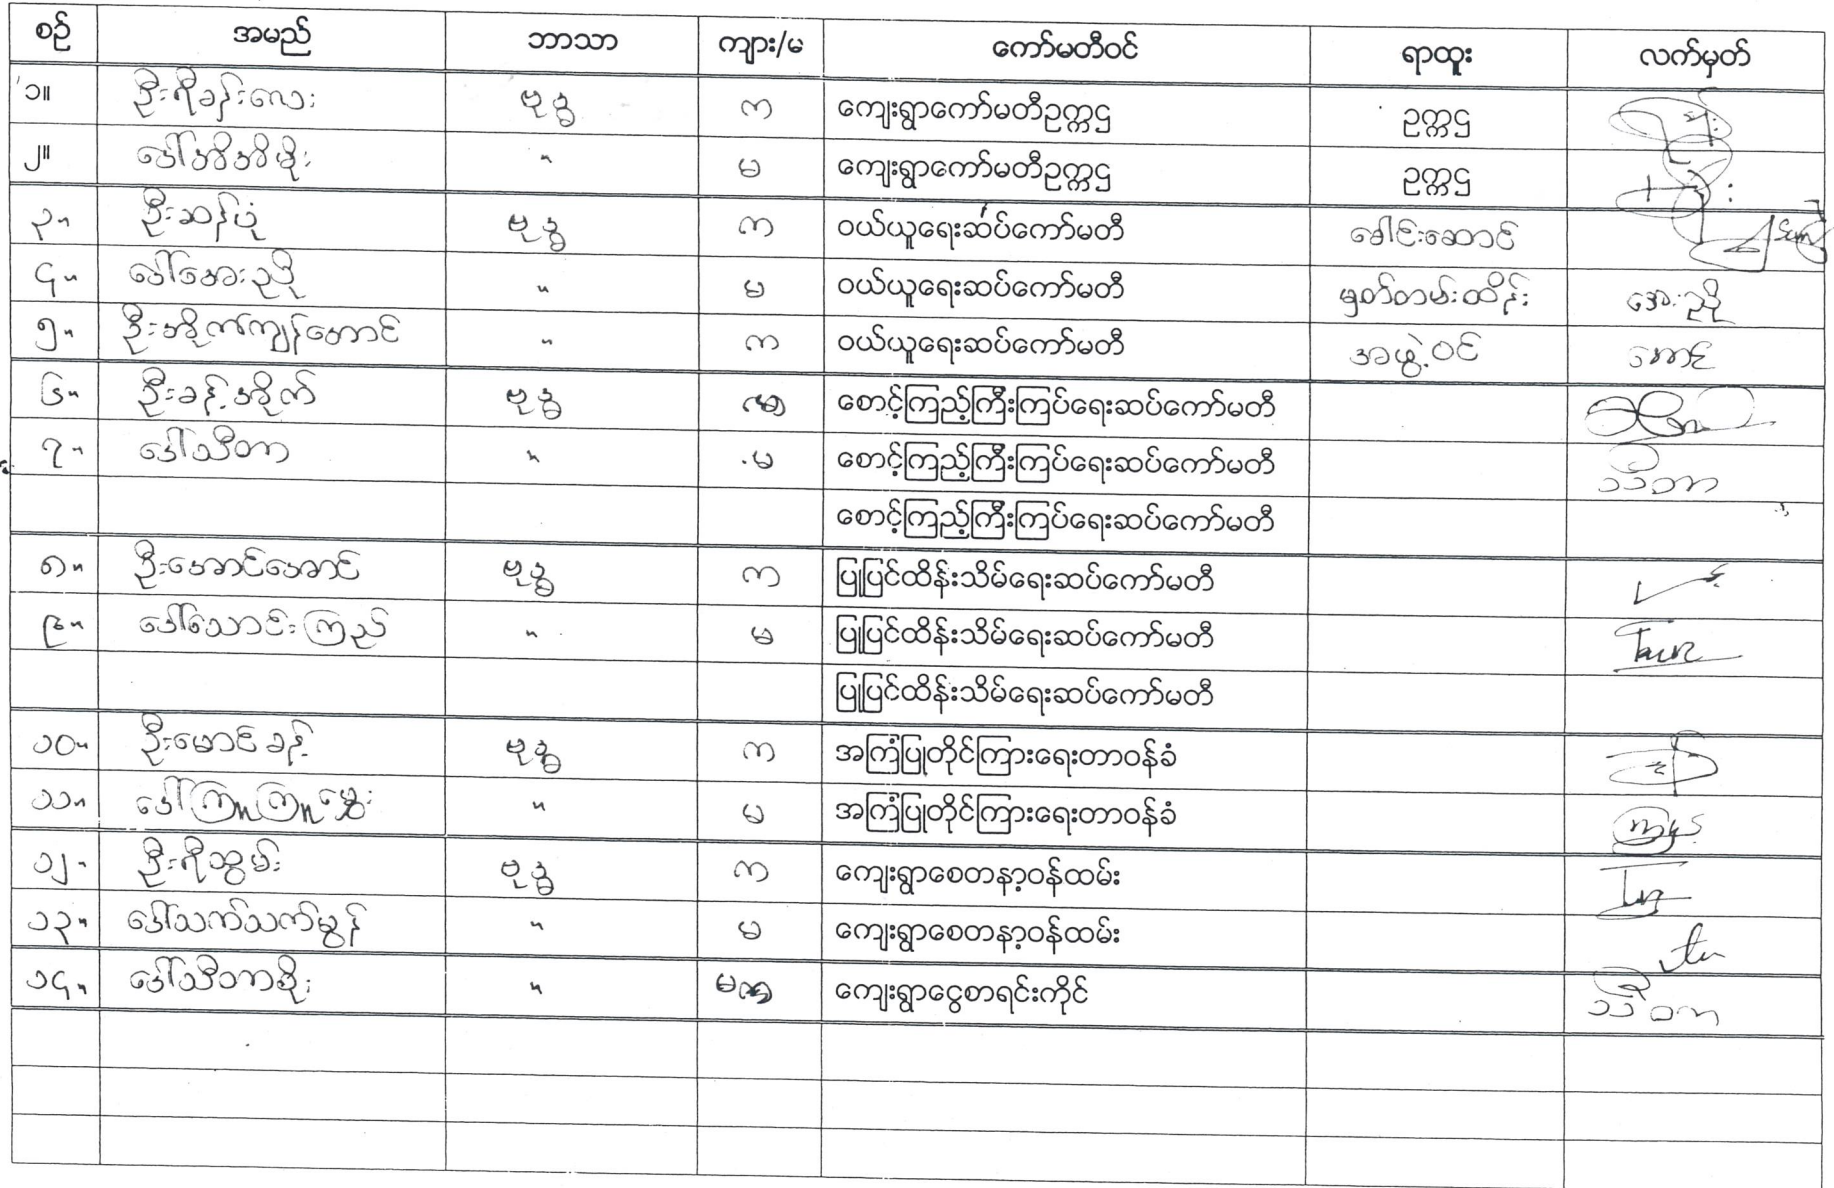 စဉ် အမည် ဘာသာ ကျား/မ ကော်မတီဝင် ရာထူး လက်မှတ်
၁။ ဦးရီခန်းလေး ဗုဒ္ဓ က ကျေးရွာကော်မတီဥက္ကဌ ဥက္ကဌ
၂။ ဒေါ်အိအိဖိုး " မ ကျေးရွာကော်မတီဥက္ကဌ ဥက္ကဌ
၃" ဦးဆန်ပုံ ဗုဒ္ဓ က ဝယ်ယူရေးဆပ်ကော်မတီ ခေါင်းဆောင်
၄" ဒေါ်အေးညို " မ ဝယ်ယူရေးဆပ်ကော်မတီ မှတ်တမ်းထိန်း အေးညို
၅" ဦးအိုက်ကျန်အောင် " က ဝယ်ယူရေးဆပ်ကော်မတီ အဖွဲ့ဝင် အောင်
၆" ဦးခန့်အိုက် ဗုဒ္ဓ စောင့်ကြည့်ကြီးကြပ်ရေးဆပ်ကော်မတီ
၇" ဒေါ်သီတာ " မ စောင့်ကြည့်ကြီးကြပ်ရေးဆပ်ကော်မတီ သီတာ
စောင့်ကြည့်ကြီးကြပ်ရေးဆပ်ကော်မတီ
၈" ဦးအောင်အောင် ဗုဒ္ဓ က ပြုပြင်ထိန်းသိမ်ရေးဆပ်ကော်မတီ
၉" ဒေါ်သောင်းကြည် " မ ပြုပြင်ထိန်းသိမ်ရေးဆပ်ကော်မတီ
ပြုပြင်ထိန်းသိမ်ရေးဆပ်ကော်မတီ
၁၀" ဦးမောင်ခန့် ဗုဒ္ဓ က အကြံပြုတိုင်ကြားရေးတာဝန်ခံ
၁၁" ဒေါ်ကြူကြူမွှေး " မ အကြံပြုတိုင်ကြားရေးတာဝန်ခံ
၁၂" ဦးရီထွမ်း ဗုဒ္ဓ က ကျေးရွာစေတနာ့ဝန်ထမ်း
၁၃" ဒေါ်သက်သက်မွန် " မ ကျေးရွာစေတနာ့ဝန်ထမ်း
၁၄" ဒေါ်သီတာစိုး " မ ကျေးရွာငွေစာရင်းကိုင် သီတာ